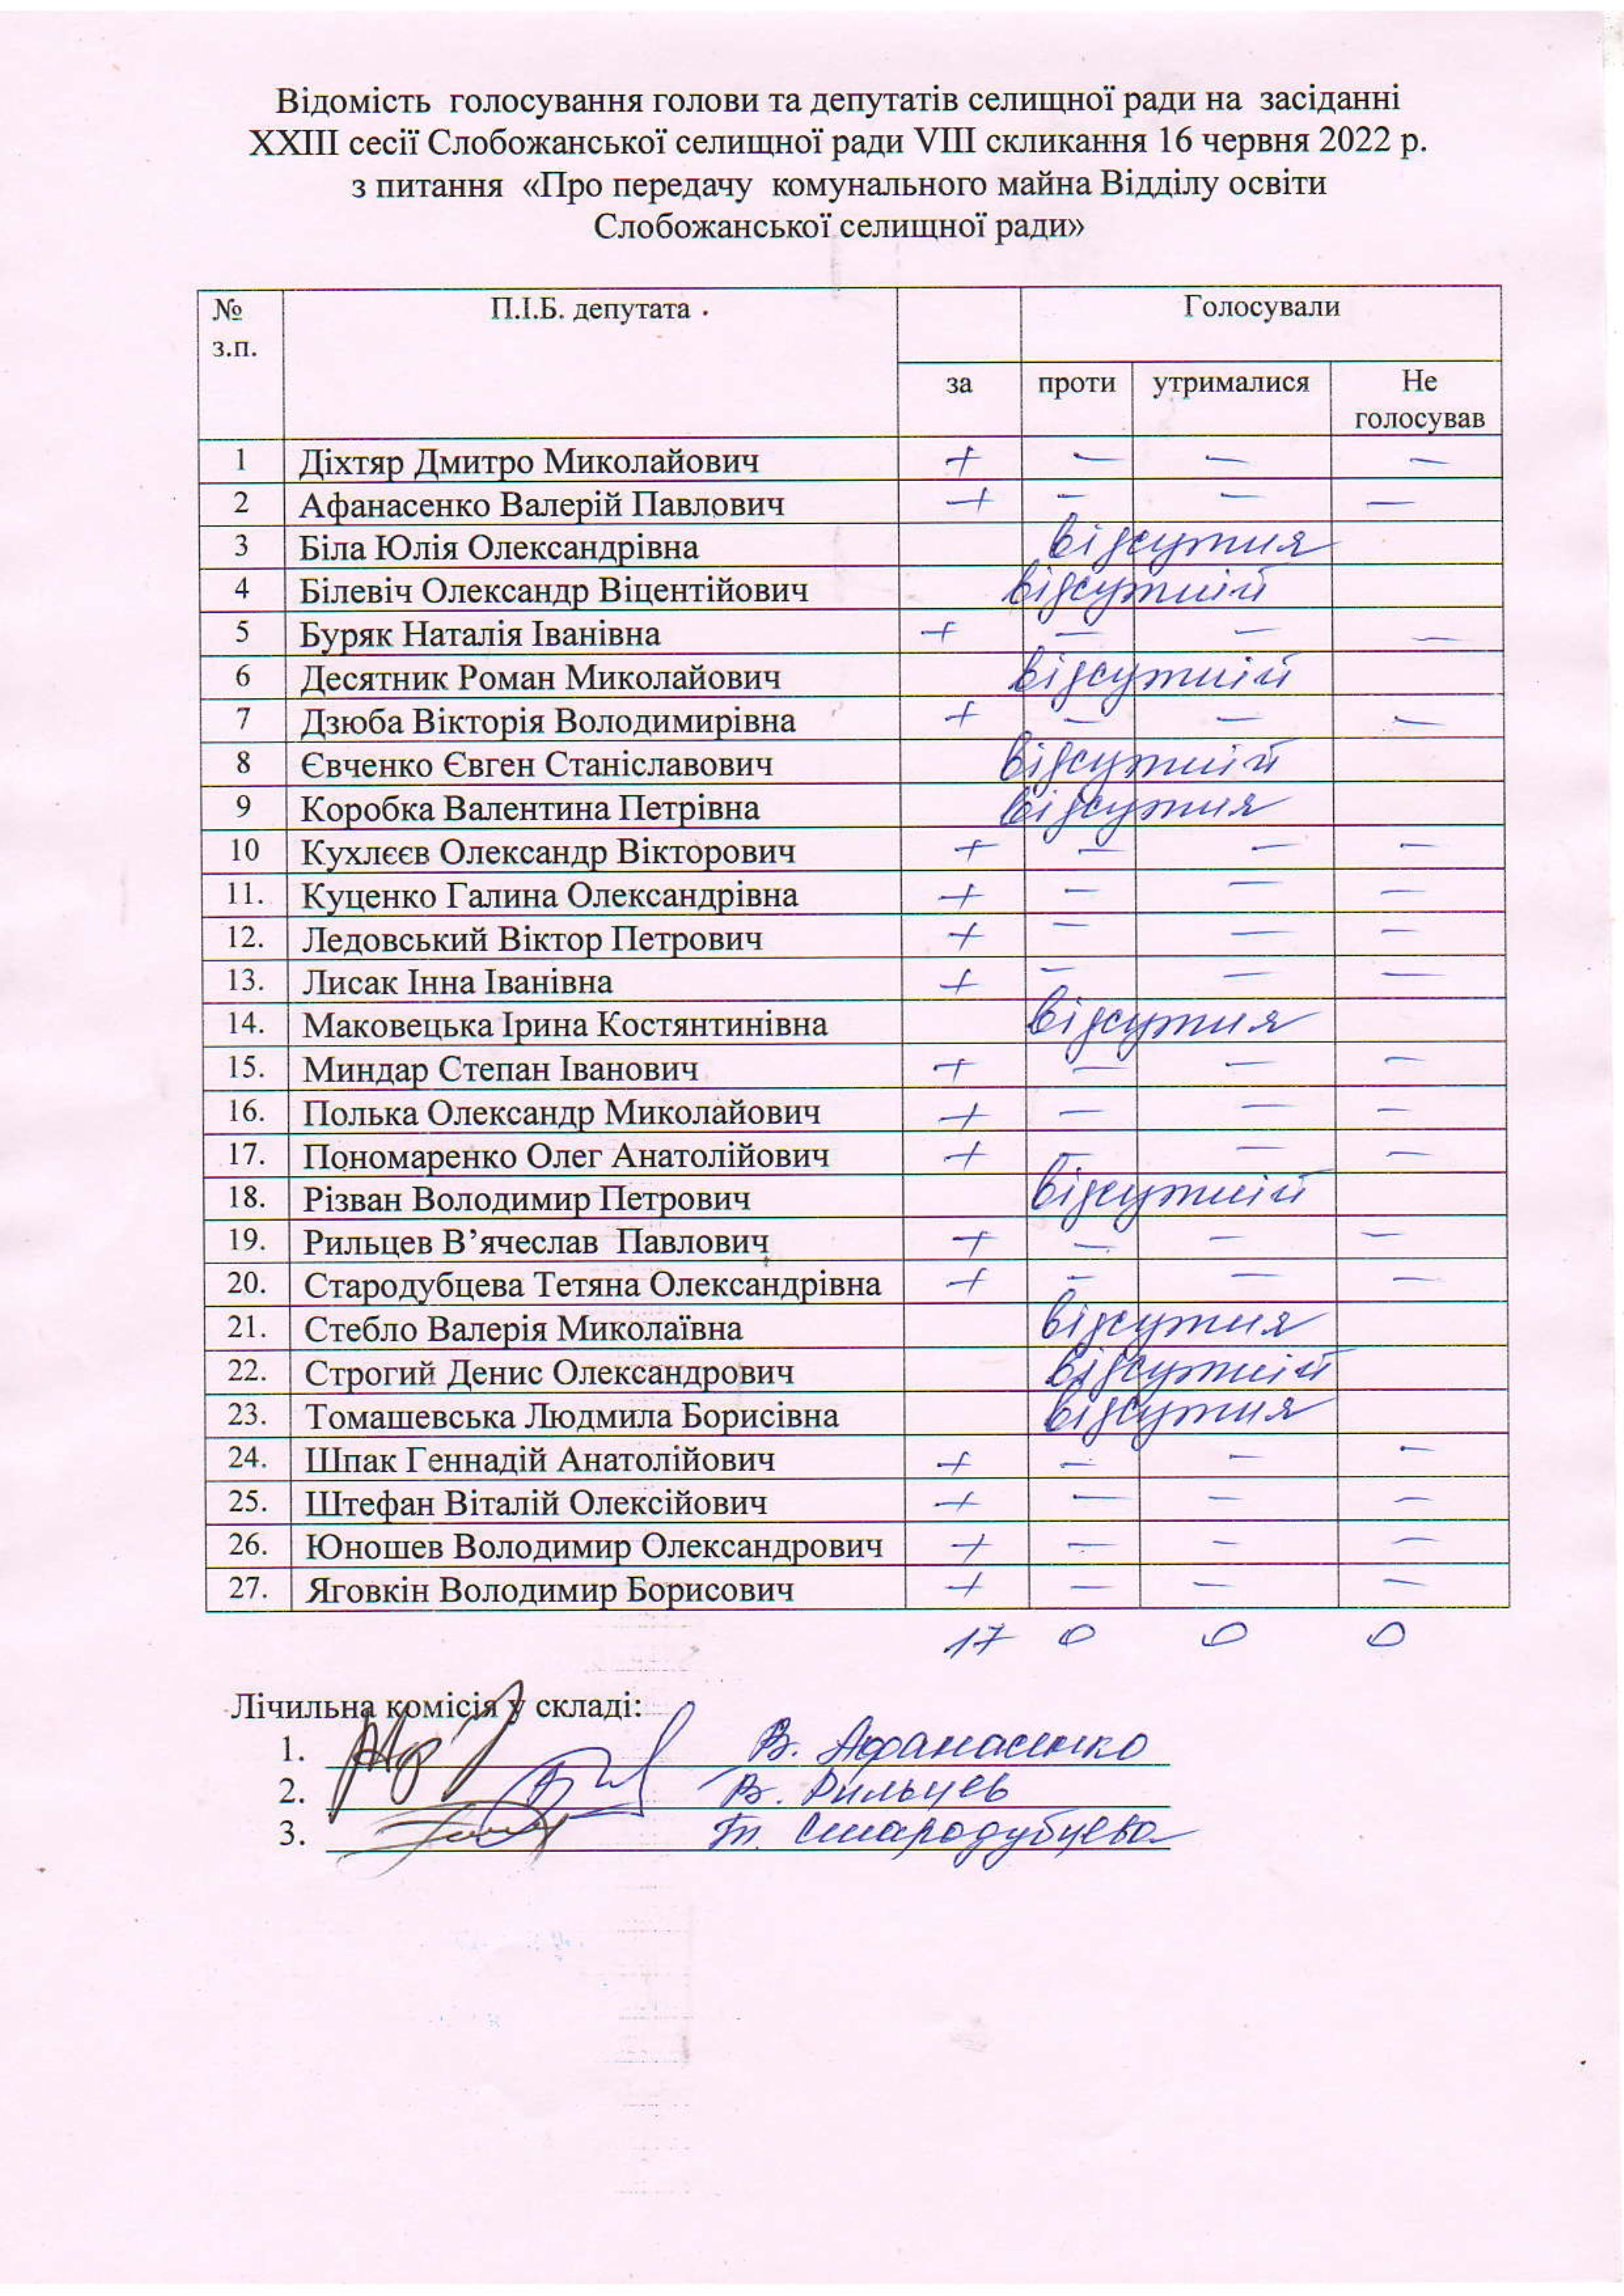 Відомість голосування голови та депутатів селищної ради на засіданні
XXIII сесії Слобожанської селищної ради VIII скликання 16 червня 2022 р.
з питання «Про передачу комунального майна Відділу освіти
Слобожанської селищної ради»
№ з.п. П.І.Б. депутата Голосували
за проти утрималися Не голосував
1 Діхтяр Дмитро Миколайович + – – –
2 Афанасенко Валерій Павлович + – – –
3 Біла Юлія Олександрівна відсутня
4 Білевіч Олександр Віцентійович відсутній
5 Буряк Наталія Іванівна + – – –
6 Десятник Роман Миколайович відсутній
7 Дзюба Вікторія Володимирівна + – – –
8 Євченко Євген Станіславович відсутній
9 Коробка Валентина Петрівна відсутня
10 Кухлєєв Олександр Вікторович + – – –
11. Куценко Галина Олександрівна + – – –
12. Ледовський Віктор Петрович + – – –
13. Лисак Інна Іванівна + – – –
14. Маковецька Ірина Костянтинівна відсутня
15. Миндар Степан Іванович + – – –
16. Полька Олександр Миколайович + – – –
17. Пономаренко Олег Анатолійович + – – –
18. Різван Володимир Петрович відсутній
19. Рильцев В’ячеслав Павлович + – – –
20. Стародубцева Тетяна Олександрівна + – – –
21. Стебло Валерія Миколаївна відсутня
22. Строгий Денис Олександрович відсутній
23. Томашевська Людмила Борисівна відсутня
24. Шпак Геннадій Анатолійович + – – –
25. Штефан Віталій Олексійович + – – –
26. Юношев Володимир Олександрович + – – –
27. Яговкін Володимир Борисович + – – –
17 0 0 0
Лічильна комісія у складі:
1. В. Афанасенко
2. В. Рильцев
3. Т. Стародубцева